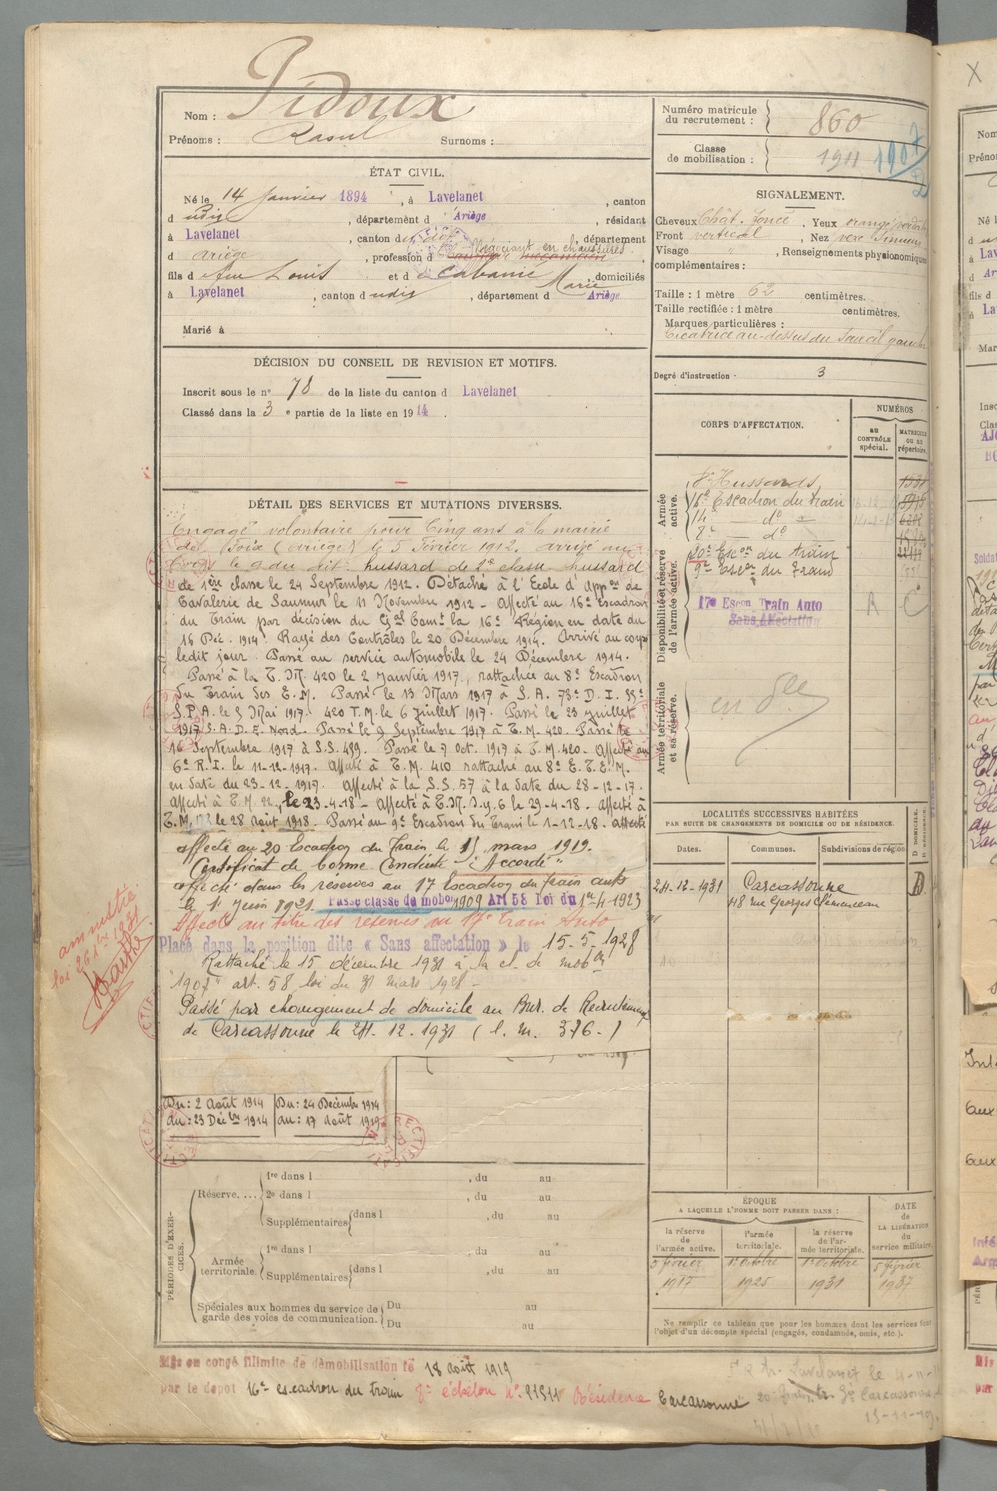 Nom : Pidoux
Prénoms : Raoul Surnoms :
ÉTAT CIVIL.
Né le 14 janvier 1894, à Lavelanet, canton
dudit, département d Ariège, résidant
à Lavelanet, canton dudit, département
d Ariège, profession d Négociant en chaussures
fils de feu Louis et de Cabanié Marie, domiciliés
à Lavelanet, canton dudit, département d Ariège
Marié à
DÉCISION DU CONSEIL DE REVISION ET MOTIFS.
Inscrit sous le n° 78 de la liste du canton d Lavelanet
Classé dans la 3e partie de la liste en 1914.
DÉTAIL DES SERVICES ET MUTATIONS DIVERSES.
Engagé volontaire pour Cinq ans à la mairie
de Foix (Ariège) le 5 Février 1912. arrivé au
Corps le 9 du dit. hussard de 2e classe. hussard
de 1ère classe le 24 Septembre 1912. Détaché à l'Ecole d'appon de
Cavalerie de Saumur le 11 Novembre 1912 - Affecté au 16e Escadron
du Train par décision du Gal Comt la 16e Région en date du
16 Déc. 1914. Rayé des Contrôles le 20 Décembre 1914. Arrivé au corps
ledit jour. Passé au service automobile le 24 Décembre 1914.
Passé à la T.M. 420 le 2 Janvier 1917, rattachée au 8e Escadron
du Train des E.M. Passé le 13 Mars 1917 à S.A. 73e D.I.
S.P.A. le 5 Mai 1917. 420 T.M. le 6 juillet 1917. Passé le 23 juillet
1917 S.A.D.E. Nord. Passé le 9 Septembre 1917 à T.M. 420. Passé le
16 Septembre 1917 à S.S. 489. Passé le 7 Oct. 1917 à T.M. 420. Affecté au
6e R.I. le 11-12-1917. Affecté à T.M. 410 rattaché au 8e E.T.E.M.
en date du 23-12-1917. Affecté à la S.S. 57 à la date du 28-12-17.
Affecté à T.M. le 23-4-18 - Affecté à T.M. 6 le 29-4-18. Affecté à
T.M. le 28 Août 1918. Passé au 9e Escadron du Train le 1-12-18. Affecté
affecté au 20 Escadron du Train le 15 mars 1919.
Certificat de bonne Conduite "Accordé"
affecté dans les réserves au 17 Escadron du train auto
le 1er juin 1921. Passé classe de mobon 1909 Art 58 Loi du 1er-4-1923
Affecté au titre des réserves au 17e Train Auto
Placé dans la position dite « Sans affectation » le 15-5-1928
Rattaché le 15 décembre 1931 à la cl. de mobon
"1907" art. 58 loi du 31 mars 1928 -
Passé par changement de domicile au Bur. de Recrutement
de Carcassonne le 24.12.1931 (l. m. 376.)
amnistié
loi 26 1931
Du : 2 Août 1914 Du : 24 Décembre 1914
au : 23 Décbre 1914 au : 17 août 1919
PÉRIODES D'EXERCICES.
Réserve....
1re dans l , du au
2e dans l , du au
Supplémentaires dans l , du au
Armée territoriale.
1re dans l , du au
Supplémentaires dans l , du au
Spéciales aux hommes du service de garde des voies de communication.
Du au
Du au
Mis en congé illimité de démobilisation le 18 Août 1919
par le dépôt 16e escadron du train 8e échelon N° 21511 Résidence Carcassonne
Numéro matricule du recrutement : 860
Classe de mobilisation : 1911 1907
SIGNALEMENT.
Cheveux Chât. foncé, Yeux
Front vertical, Nez
Visage , Renseignements physionomiques
complémentaires :
Taille : 1 mètre 62 centimètres.
Taille rectifiée : 1 mètre centimètres.
Marques particulières :
Cicatrice au-dessus du sourcil gauche
Degré d'instruction : 3
CORPS D'AFFECTATION.
NUMÉROS
au CONTRÔLE spécial.
MATRICULE ou au répertoire.
Armée active.
Hussards
16e Escadron du train
14 do
8e do
Disponibilité et réserve de l'armée active.
20e Escon du train
9e Escon du Train
17e Escon Train Auto
Sans Affectation
A C
Armée territoriale et sa réserve.
LOCALITÉS SUCCESSIVES HABITÉES
PAR SUITE DE CHANGEMENTS DE DOMICILE OU DE RÉSIDENCE.
Dates. Communes. Subdivisions de région. D. DOMICILE R. RÉSIDENCE
24-12-1931 Carcassonne D
48 rue Georges Clémenceau
ÉPOQUE
A LAQUELLE L'HOMME DOIT PASSER DANS :
la réserve de l'armée active.
l'armée territoriale.
la réserve de l'armée territoriale.
DATE de LA LIBÉRATION du service militaire.
5 février 1917
1er octobre 1925
1er octobre 1931
5 février 1937
Ne remplir ce tableau que pour les hommes dont les services font
l'objet d'un décompte spécial (engagés, condamnés, omis, etc.).